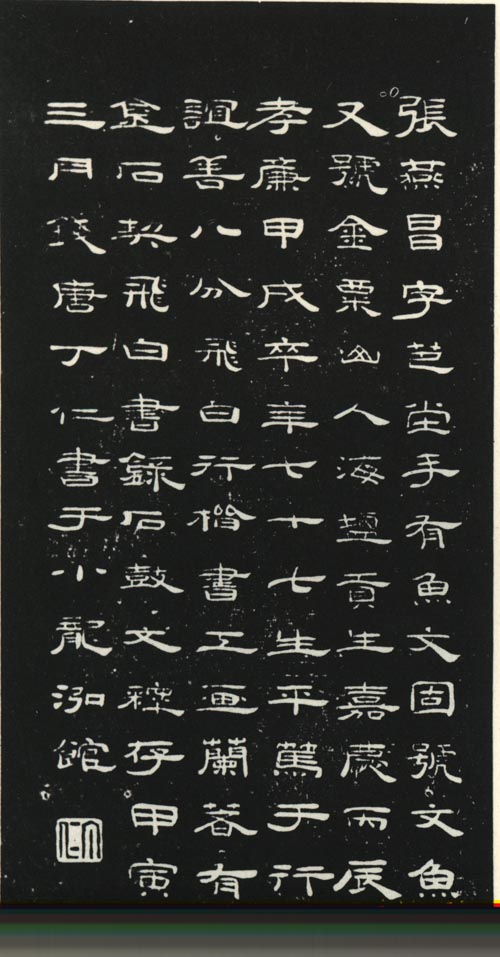 張燕昌字芑堂手有魚文固號文魚
又號金粟山人海鹽貢生嘉慶丙辰
孝廉甲戌卒年七十七生平篤于行
誼善八分飛白行楷書工畫蘭著有
金石契飛白書錄石鼓文釋存甲寅
三月錢唐丁仁書于小龍泓館